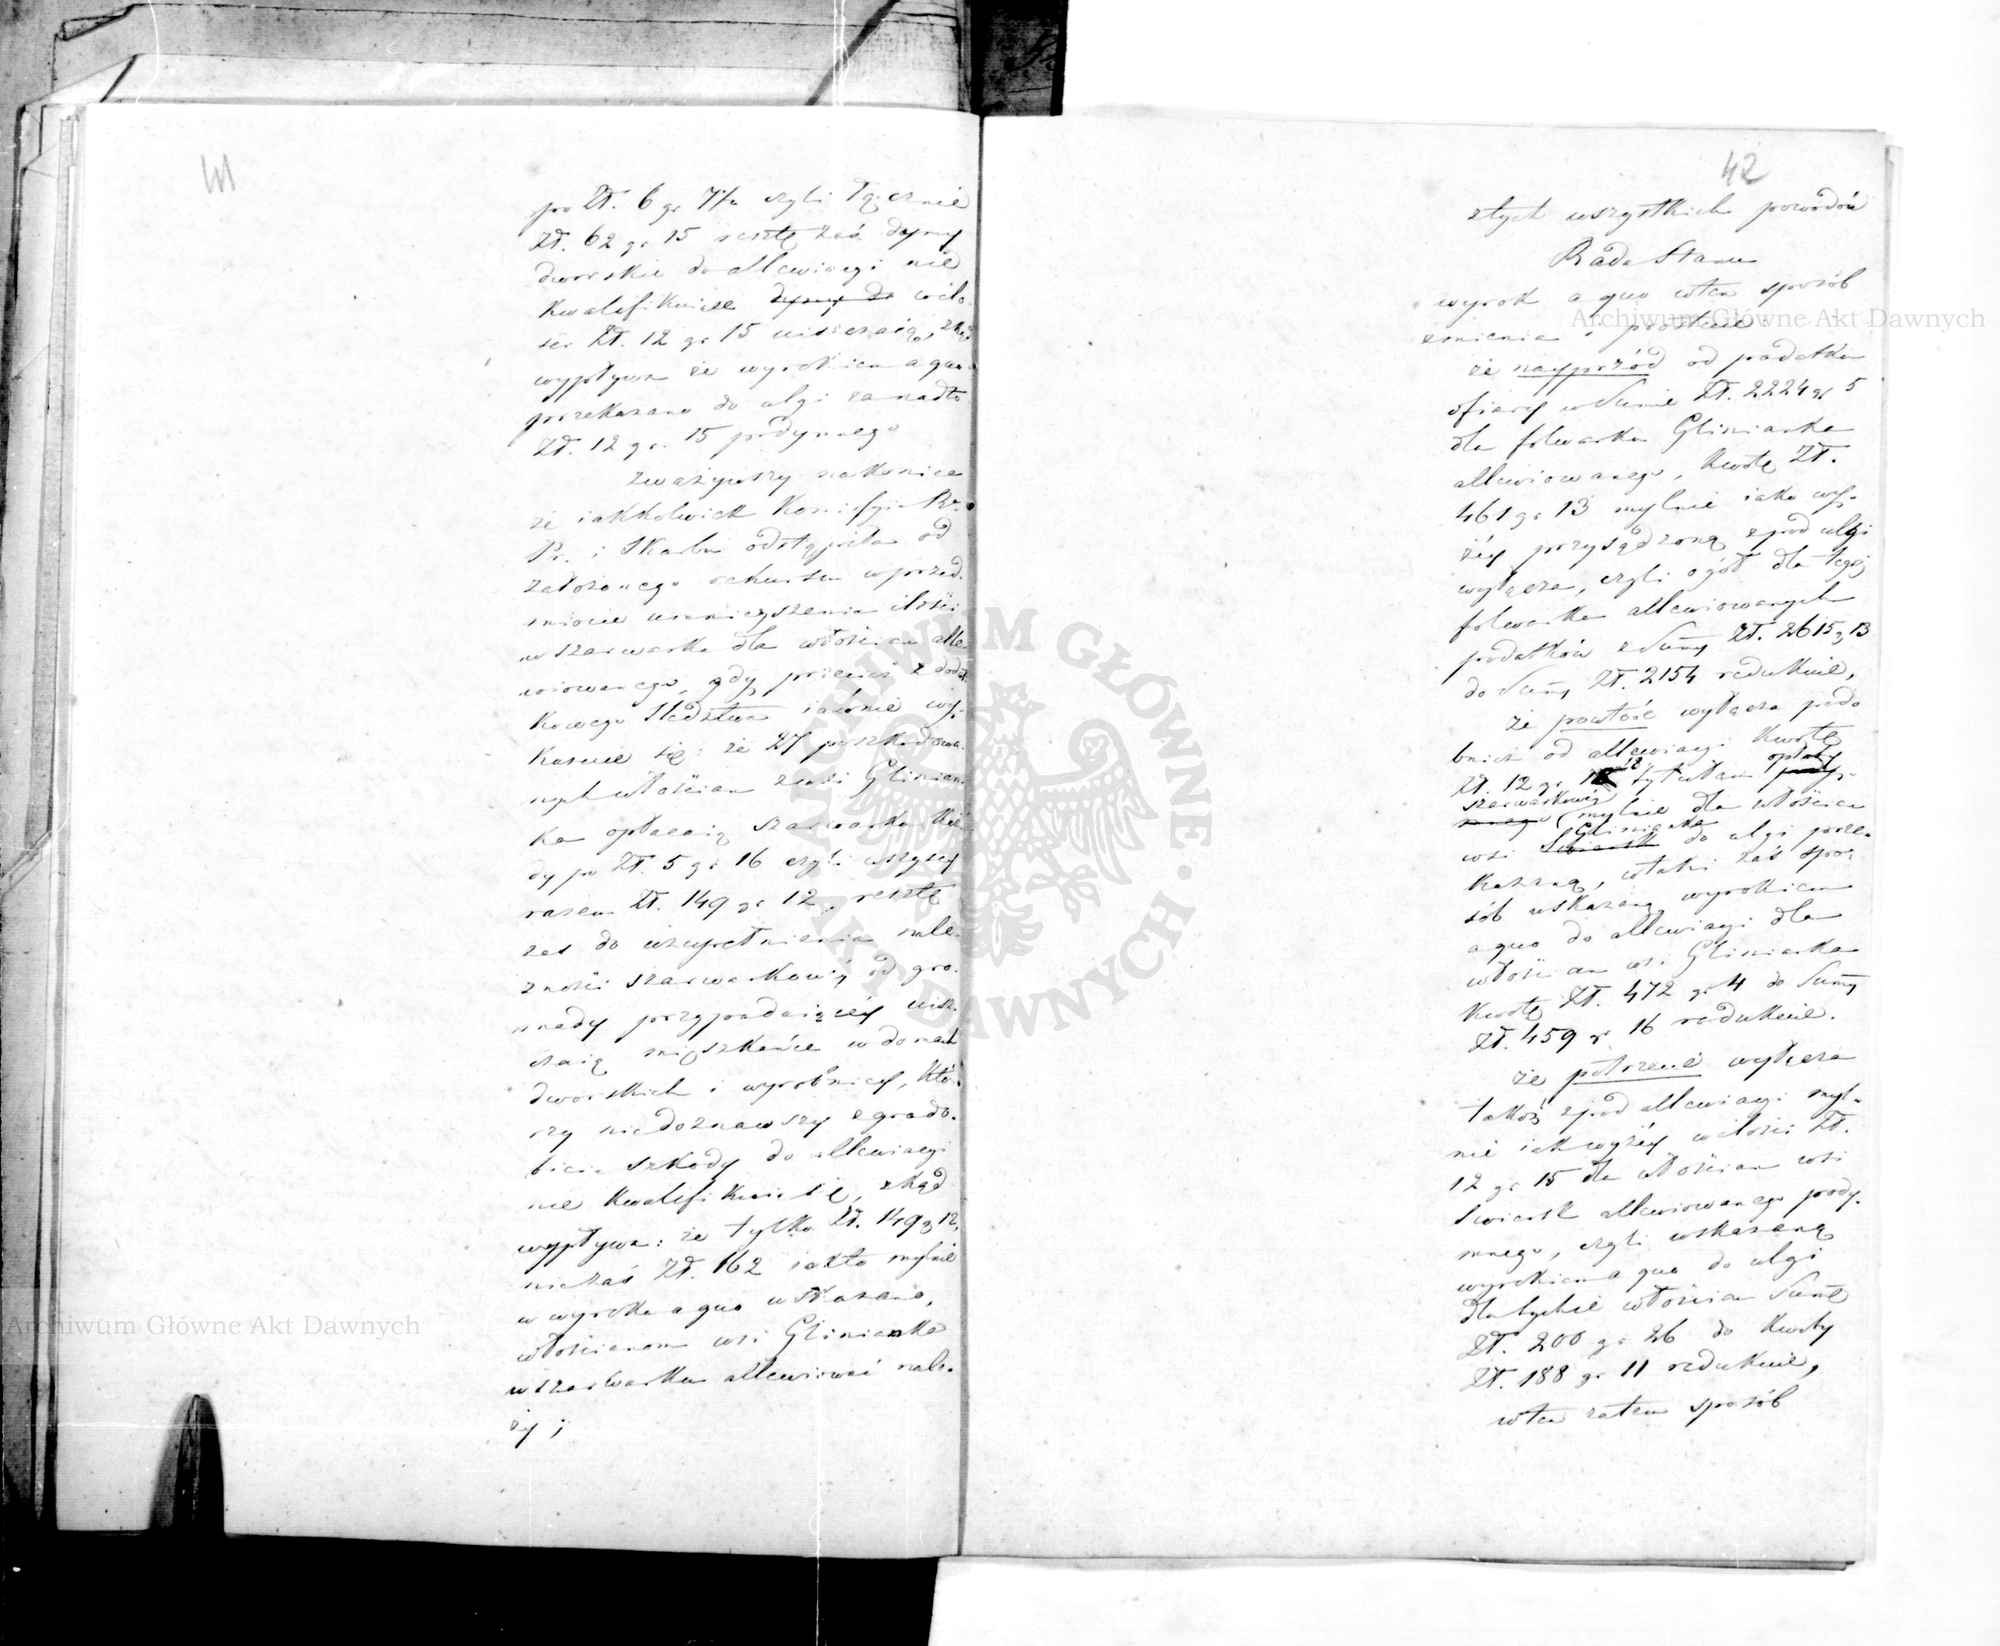 41
po Zł. 6 gr 7½ czyli łącznie
Zł. 62 gr 15 resztę zaś dymy
dworskie do allewiacyi nie
kwalifikuiące dymy do wilo-
ści Zł. 12 gr 15 uiszczaią, zkąd
wypływa że wyrokiem a quo
przekazano do ulgi zanadto
Zł. 12 gr. 15 podymnego
zważywszy nakoniec
że iakkolwiek Kommissyia Rz.
Pr. i Skarbu odstąpiła od
założonego rekursu w przed-
miocie umnieyszenia ilości
szarwarku dla włościan alle-
wiowanego, gdy przecież z dodat-
kowego śledztwa iawnie wy-
kazuie się: że 27 poszkodowa-
nych włościan z wsi Glinian-
ka opłacaią szarwarku każ-
dy po Zł. 5 gr 16 czyli wszyscy
razem Zł. 149 gr 12, resztę
zaś do uzupełnienia nale-
żności szarwarkowéy od gro-
mady przypadaiącéy uisz-
czaią mieszkańce w domach
dworskich i wyrobnicy, któ-
rzy niedoznawszy z grado-
bicia szkody do allewiacyi
nie kwalifikuią się, zkąd
wypływa: że tylko Zł. 149 gr 12,
nie zaś Zł. 162 iak to mylnie
w wyroku a quo wskazano,
włościanom wsi Glinianka
w szarwarku allewiować nale-
ży;
42
z tych wszystkich powodów
Rada Stanu
wyrok a quo w ten sposób
zmienia i prostuie
że nayprzód od podatku
ofiary w Summie Zł. 2224 gr 5
dla folwarku Glinianka
allewiowanego, kwotę Zł.
461 gr 13 mylnie iako wy-
żéy przysądzoną z pod ulgi
wyłącza, czyli ogół dla tegoż
folwarku allewiowanych
podatków z Summy Zł. 2615 gr 13
do Summy Zł. 2154 redukuie,
że powtóre wyłącza podo
bnież od allewiacyi kwotę
Zł. 12 gr. 18 tytułem opłaty pody-
szarwarkowéy mnego mylnie dla włościan
wsi Glinianka Świersk do ulgi prze-
kazaną, w taki zaś spo-
sób wskazaną wyrokiem
a quo do allewiacyi dla
włościan wsi Glinianka
kwotę Zł. 472 gr 4 do Summy
Zł. 459 gr 16 redukuie.
że potrzecie wyłącza
takoż z pod allewiacyi myl-
nie iak wyżéy w ilości Zł.
12 gr 15 dla włościan wsi
Świersk allewiowanego pody-
mnego, czyli wskazaną
wyrokiem a quo do ulgi
dla tychże włościan Summę
Zł. 200 gr 26 do kwoty
Zł. 188 gr 11 redukuie,
w ten zatem sposób
Archiwum Główne Akt Dawnych
Archiwum Główne Akt Dawnych
ARCHIWUM GŁÓWNE AKT DAWNYCH